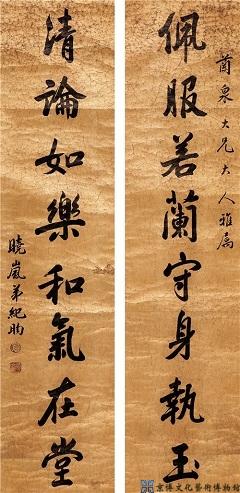 茵泉大兄大人雅屬
佩服若蘭守身執玉
清論如樂和氣在堂
曉嵐弟紀昀
京博文化藝術博物館